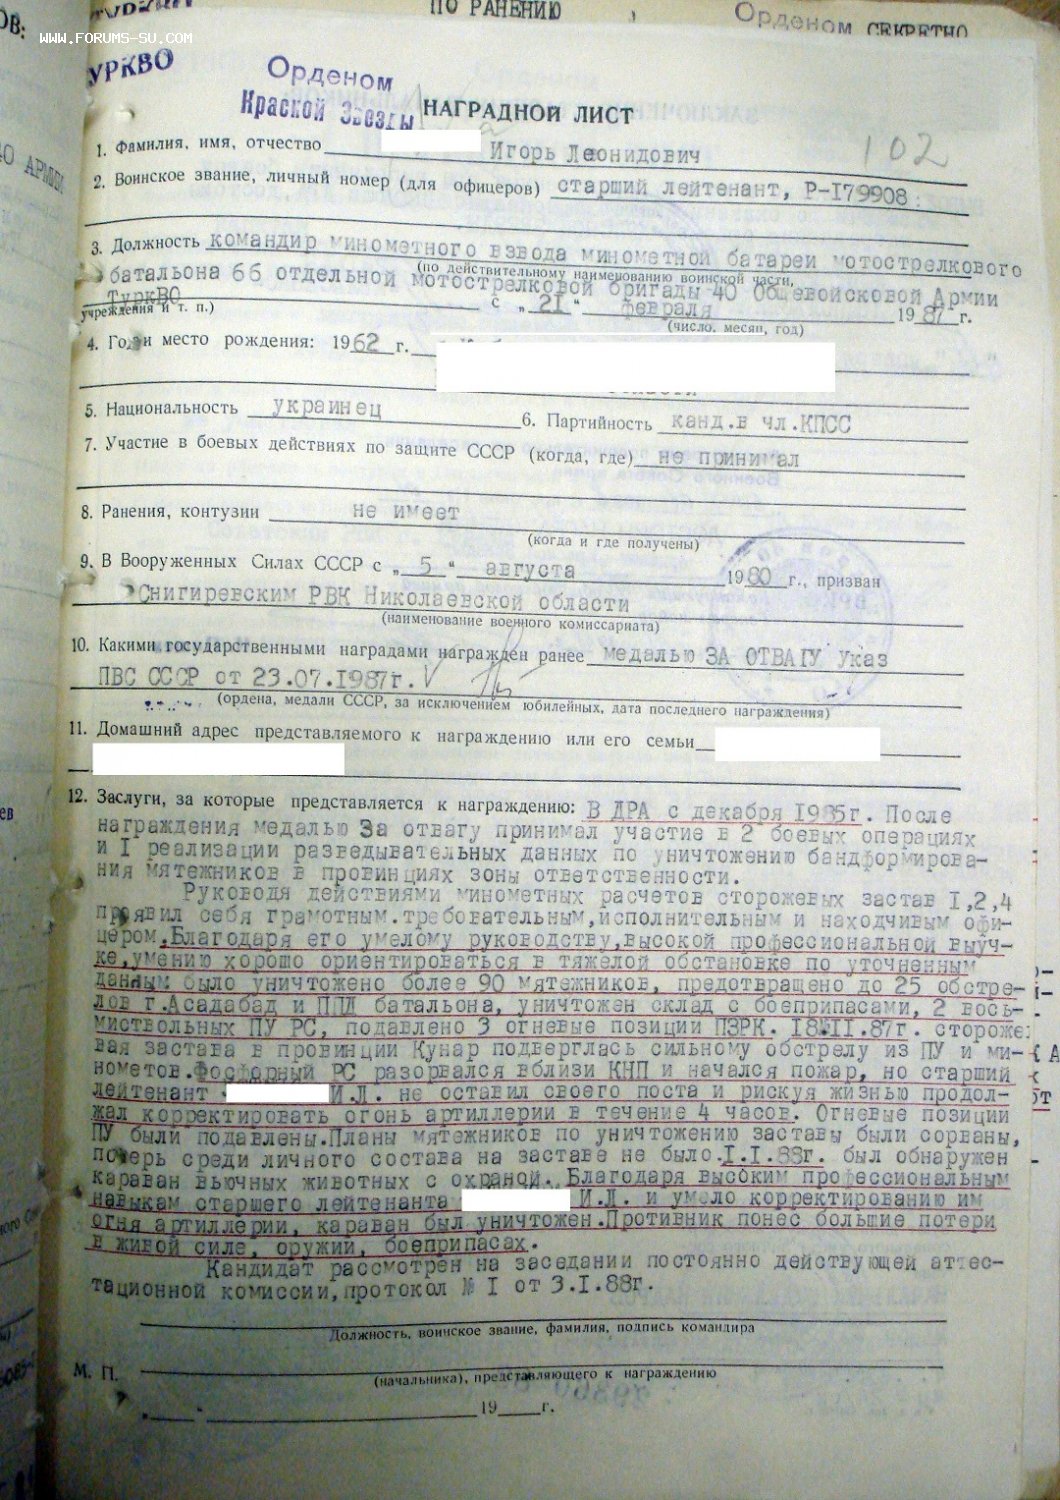 ПО РАНЕНИЮ
Орденом СЕКРЕТНО
WWW.FORUMS-SU.COM
ТУРКВО
Орденом
Красной Звезды
НАГРАДНОЙ ЛИСТ
102
1. Фамилия, имя, отчество Игорь Леонидович
2. Воинское звание, личный номер (для офицеров) старший лейтенант, Р-179908
3. Должность командир минометного взвода минометной батареи мотострелкового
(по действительному наименованию воинской части,
батальона 66 отдельной мотострелковой бригады 40 Общевойсковой Армии
ТуркВО
учреждения и т. п.) с „21“ февраля 1987 г.
(число, месяц, год)
4. Год и место рождения: 1962 г.
5. Национальность украинец 6. Партийность канд.в чл.КПСС
7. Участие в боевых действиях по защите СССР (когда, где) не принимал
8. Ранения, контузии не имеет
(когда и где получены)
9. В Вооруженных Силах СССР с „5“ августа 1980 г., призван
Снигиревским РВК Николаевской области
(наименование военного комиссариата)
10. Какими государственными наградами награжден ранее медалью ЗА ОТВАГУ Указ
ПВС СССР от 23.07.1987г.
(ордена, медали СССР, за исключением юбилейных, дата последнего награждения)
11. Домашний адрес представляемого к награждению или его семьи
12. Заслуги, за которые представляется к награждению: В ДРА с декабря 1985г. После
награждения медалью За отвагу принимал участие в 2 боевых операциях
и I реализации разведывательных данных по уничтожению бандформирова-
ния мятежников в провинциях зоны ответственности.
Руководя действиями минометных расчетов сторожевых застав I,2,4
проявил себя грамотным.требовательным,исполнительным и находчивым офи-
цером.Благодаря его умелому руководству,высокой профессиональной выуч-
ке,умению хорошо ориентироваться в тяжелой обстановке по уточненным
данным было уничтожено более 90 мятежников, предотвращено до 25 обстре-
лов г.Асадабад и ППД батальона, уничтожен склад с боеприпасами, 2 вось-
миствольных ПУ РС, подавлено 3 огневые позиции ПЗРК. 18.11.87г. стороже-
вая застава в провинции Кунар подверглась сильному обстрелу из ПУ и ми-
нометов.Фосфорный РС разорвался вблизи КНП и начался пожар, но старший
лейтенант И.Л. не оставил своего поста и рискуя жизнью продол-
жал корректировать огонь артиллерии в течение 4 часов. Огневые позиции
ПУ были подавлены.Планы мятежников по уничтожению заставы были сорваны,
потерь среди личного состава на заставе не было.I.I.88г. был обнаружен
караван вьючных животных с охраной. Благодаря высоким профессиональным
навыкам старшего лейтенанта И.Л. и умело корректированию им
огня артиллерии, караван был уничтожен.Противник понес большие потери
в живой силе, оружии, боеприпасах.
Кандидат рассмотрен на заседании постоянно действующей аттес-
тационной комиссии,протокол № I от 3.I.88г.
Должность, воинское звание, фамилия, подпись командира
М. П.
(начальника), представляющего к награждению
„ “ 19 г.